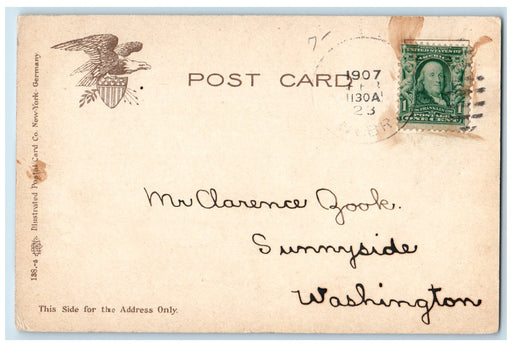 POST CARD
1907
1130A
23
UNITED STATES OF AMERICA
FRANKLIN
POSTAGE
ONE CENT
Mr Clarence Zook.
Sunnyside
Washington
This Side for the Address Only.
138.-s Illustrated Postal Card Co. New-York. Germany